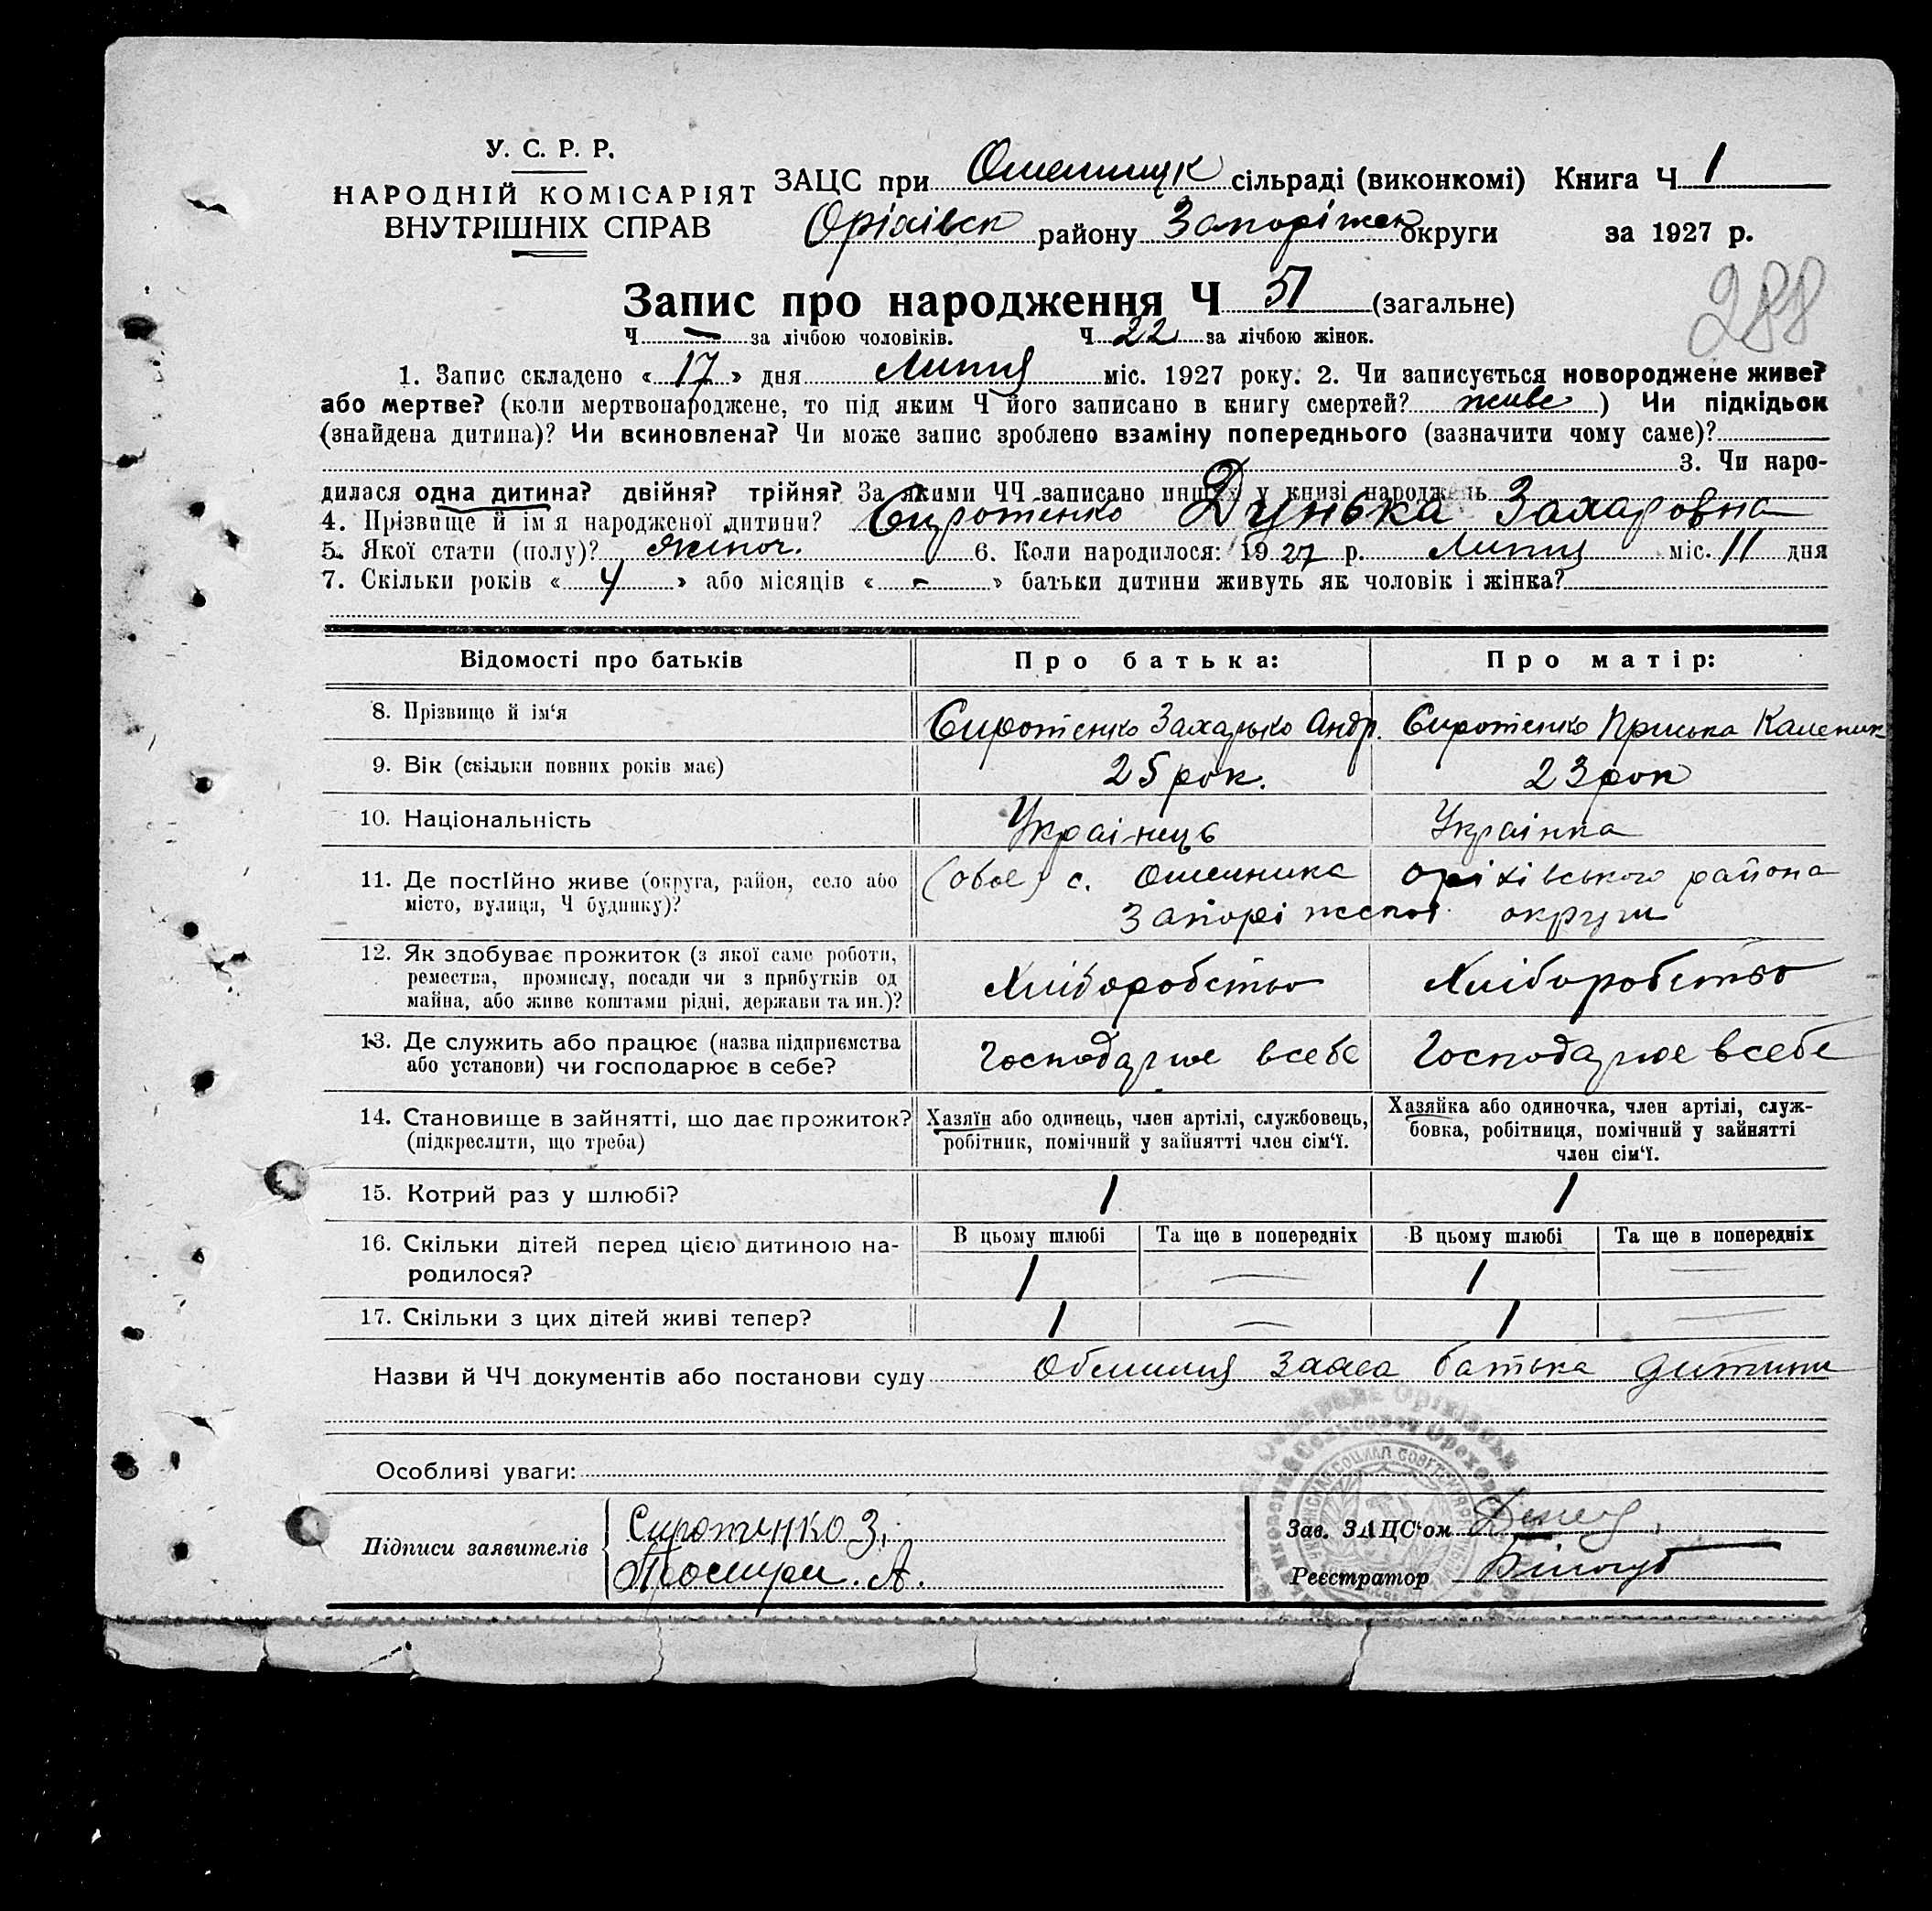 У. С. Р. Р.
НАРОДНІЙ КОМІСАРІЯТ
ВНУТРІШНІХ СПРАВ
ЗАЦС при Омельницк сільраді (виконкомі) Книга Ч 1
Оріхівск району Запоріжск округи за 1927 р.
288
Запис про народження Ч 51 (загальне)
Ч — за лічбою чоловіків. Ч 22 за лічбою жінок.
1. Запис складено « 17 » дня Липця міс. 1927 року. 2. Чи записується новороджене живе?
або мертве? (коли мертвонароджене, то під яким Ч його записано в книгу смертей? живе ) Чи підкідьок
(знайдена дитина)? Чи всиновлена? Чи може запис зроблено взаміну попереднього (зазначити чому саме)?
3. Чи наро-
дилася одна дитина? двійня? трійня? За якими ЧЧ записано инших у книзі народжень
4. Прізвище й ім'я народженої дитини? Сиротенко Дунька Захаровна
5. Якої стати (полу)? жіноч. 6. Коли народилося: 1927 р. Липця міс. 11 дня
7. Скільки років « 4 » або місяців « - » батьки дитини живуть як чоловік і жінка?
Відомості про батьків Про батька: Про матір:
8. Прізвище й ім'я Сиротенко Захарько Андр. Сиротенко Приська Каленик
9. Вік (скільки повних років має) 25 рок. 23 рок
10. Національність Українець Українка
11. Де постійно живе (округа, район, село або місто, вулиця, Ч будинку)? (обоє) с. Омельника Оріхівського района
Запоріжскої округи
12. Як здобуває прожиток (з якої саме роботи,
ремества, промислу, посади чи з прибутків од
майна, або живе коштами рідні, держави та ин.)? Хліборобство Хліборобство
13. Де служить або працює (назва підприємства
або установи) чи господарює в себе? Господарює всебе Господарює всебе
14. Становище в зайнятті, що дає прожиток?
(підкреслити, що треба)
Хазяїн або одинець, член артілі, службовець,
робітник, помічний у зайнятті член сім'ї.
Хазяйка або одиночка, член артілі, служ-
бовка, робітниця, помічний у зайнятті
член сім'ї.
15. Котрий раз у шлюбі? 1 1
16. Скільки дітей перед цією дитиною на-
родилося?
В цьому шлюбі Та ще в попередніх В цьому шлюбі Та ще в попередніх
1 — 1 —
17. Скільки з цих дітей живі тепер? 1 — 1 —
Назви й ЧЧ документів або постанови суду заява батька дитини
Особливі уваги:
Підписи заявителів Сиротенко З.
Зав. ЗАЦС'ом
Реєстратор Білогуб